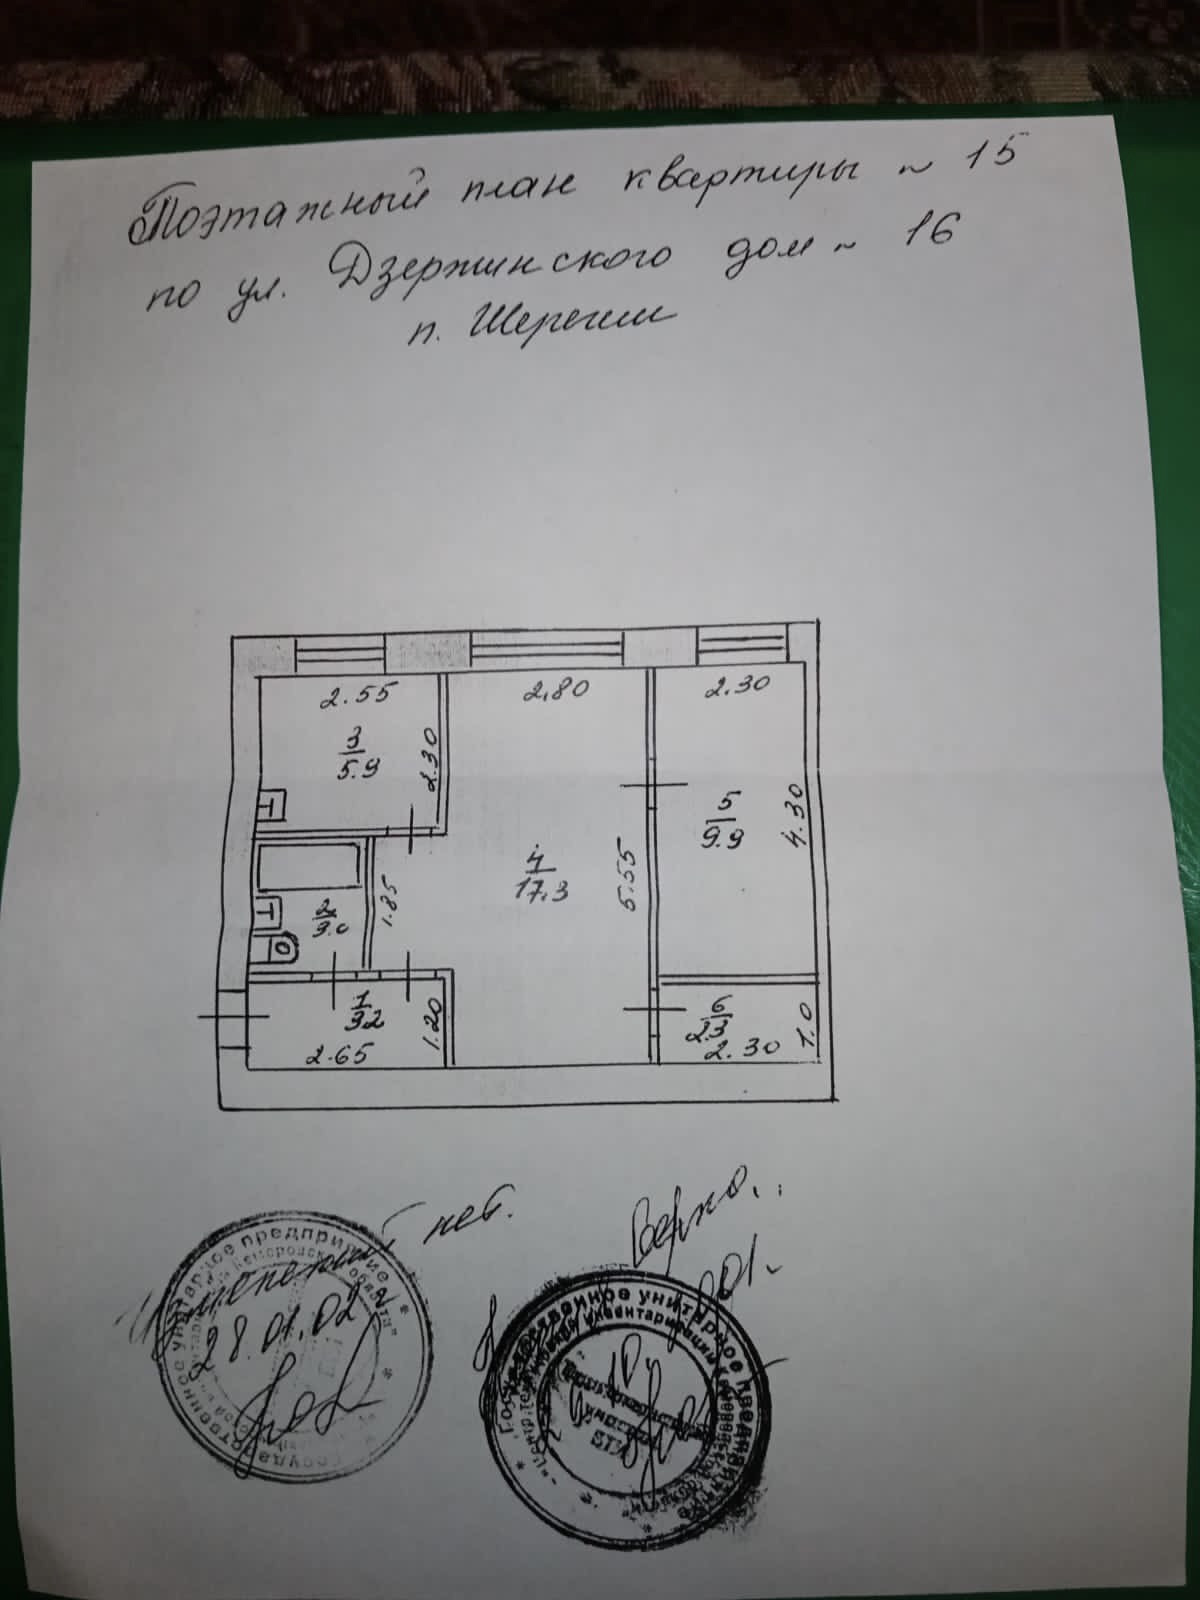 Поэтажный план квартиры ~ 15
по ул. Дзержинского дом ~ 16
п. Шерегеш
2.55
2.80
2.30
3
5.9
2.30
5
9.9
4.30
4
17.3
5.55
1.85
2
3.0
1
3.2
1.20
2.65
6
2.3
2.30
1.0
Изменений нет.
28.01.02г
Верно.
Государственное унитарное предприятие
Кемеровской области
государственное унитарное
инвентаризации
БТИ